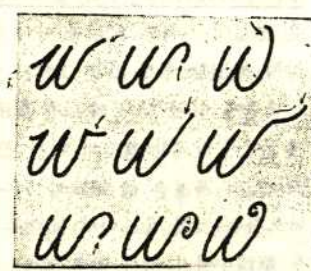 w w w
w w w
w w w